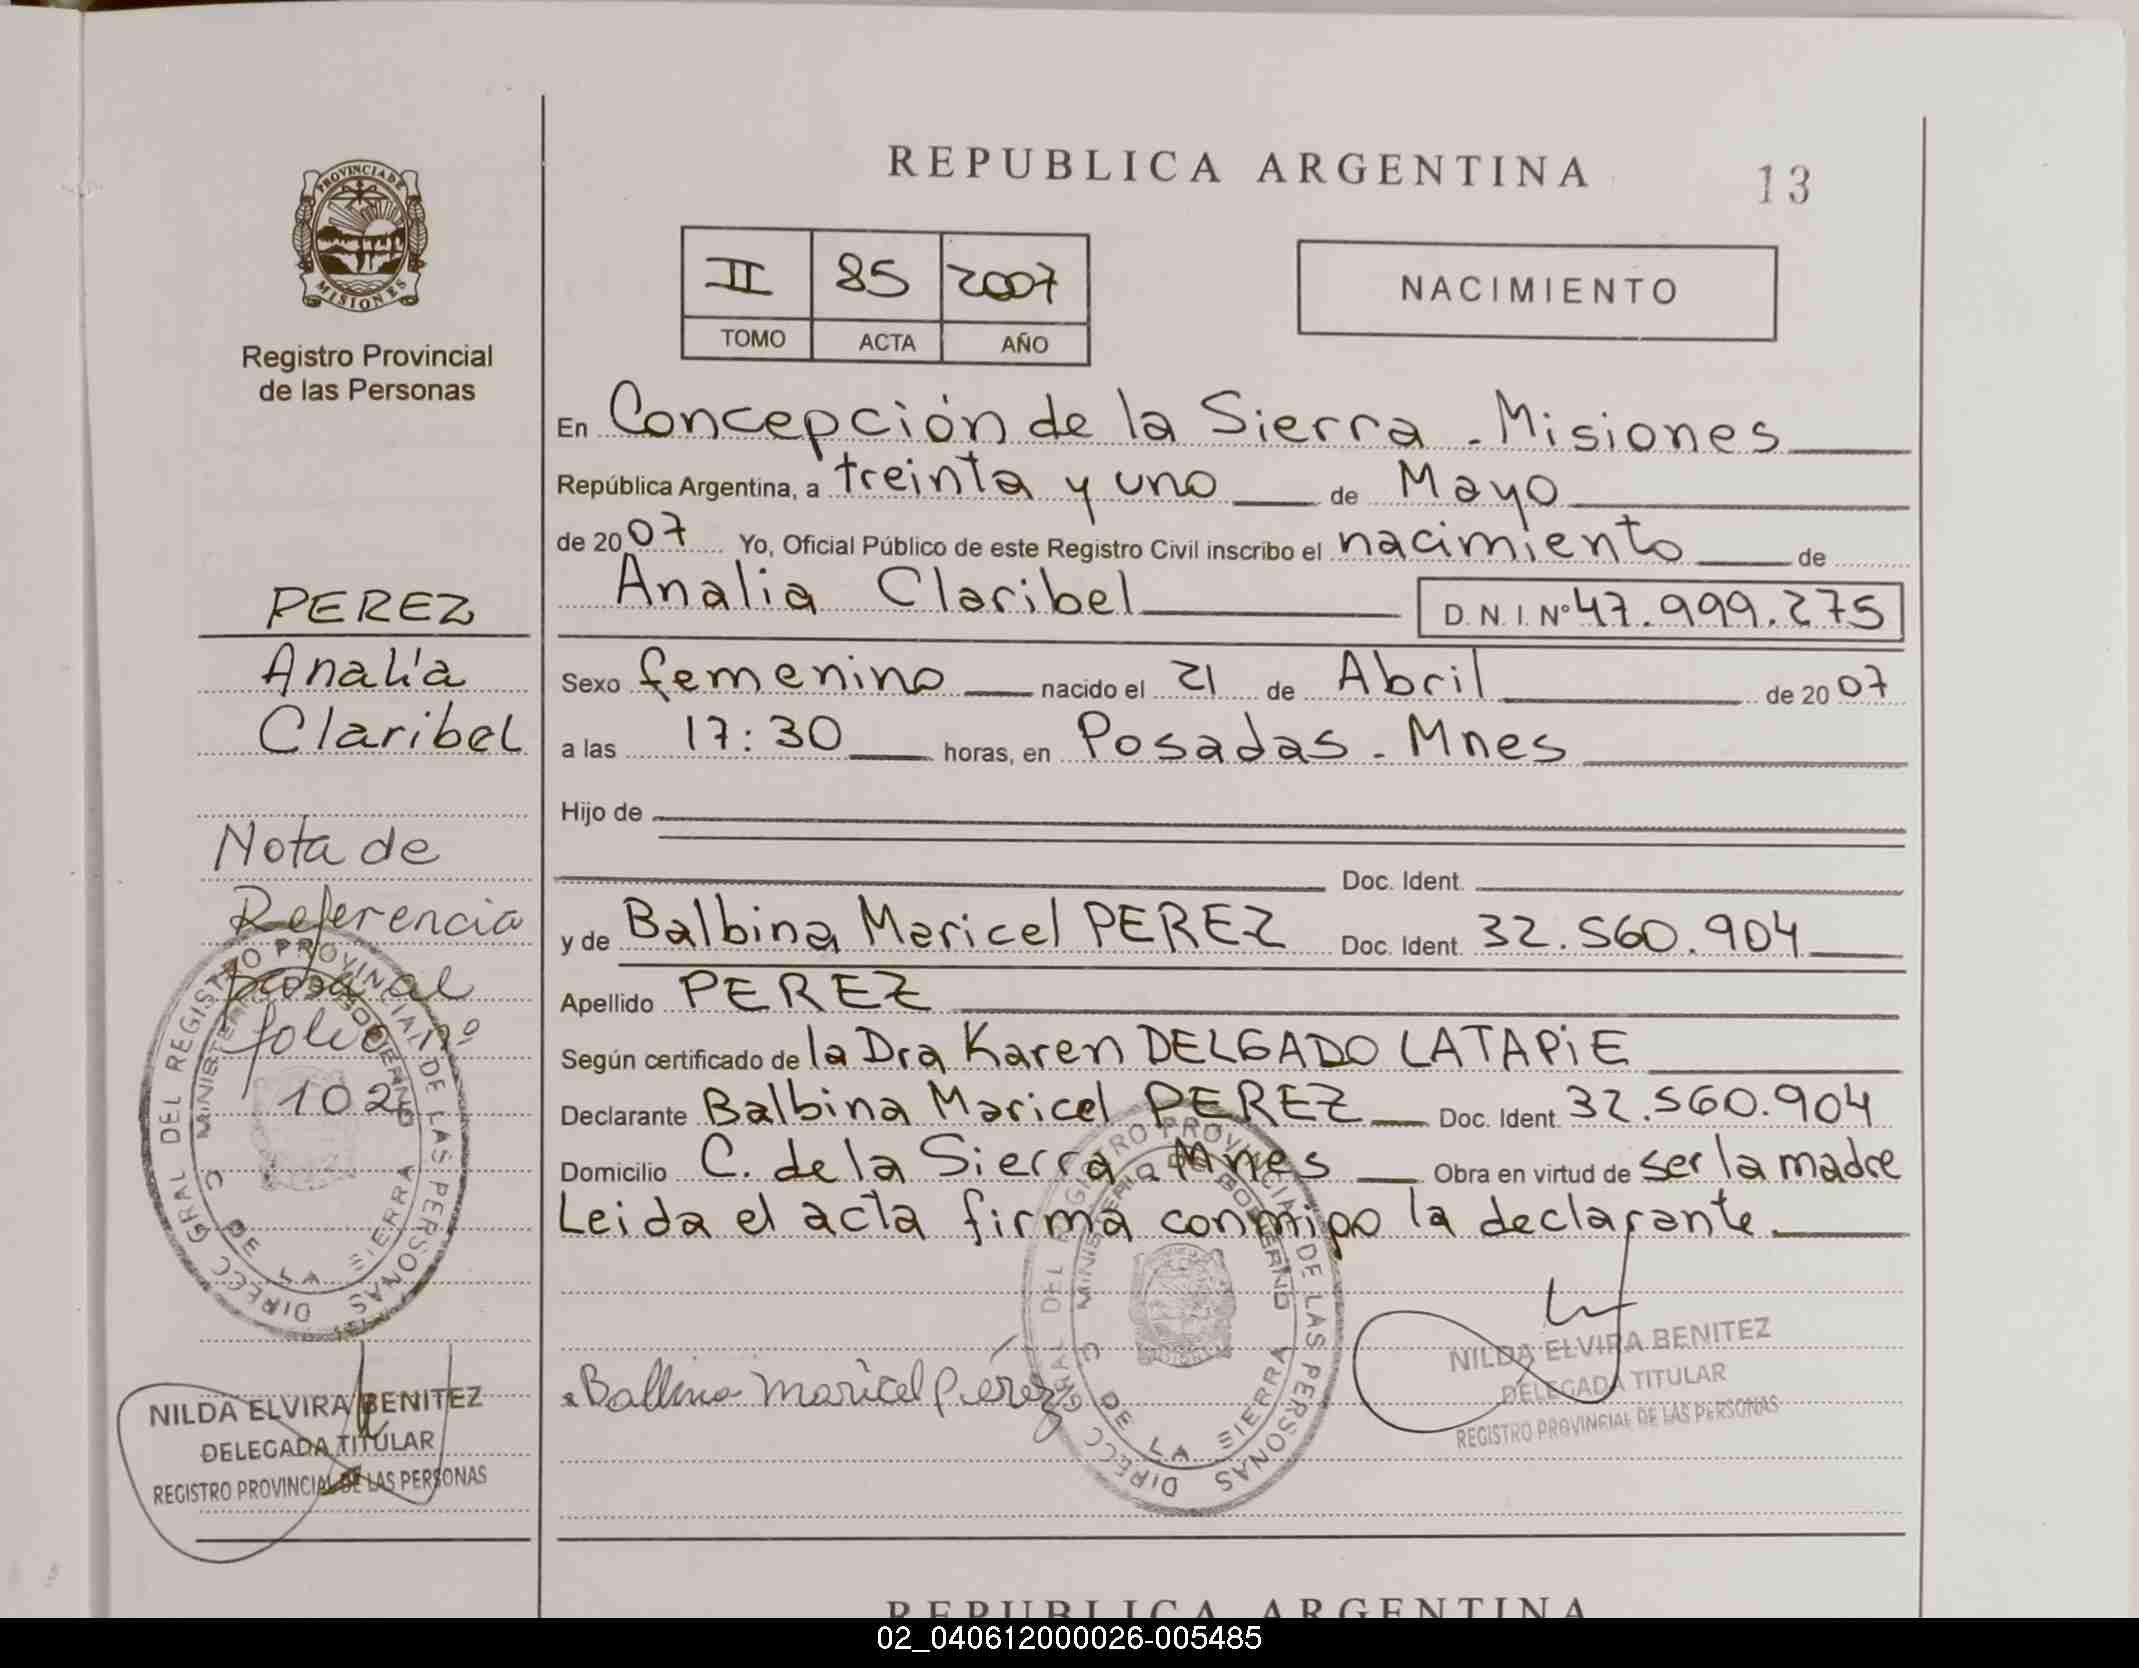 REPUBLICA ARGENTINA
13
PROVINCIA DE
MISIONES
Registro Provincial
de las Personas
II 85 2007
TOMO ACTA AÑO
NACIMIENTO
En Concepción de la Sierra - Misiones
República Argentina, a treinta y uno de Mayo
de 2007 Yo, Oficial Público de este Registro Civil inscribo el nacimiento de
Analia Claribel D.N.I. Nº 47.999.275
Sexo femenino nacido el 21 de Abril de 2007
a las 17:30 horas, en Posadas - Mnes
Hijo de
Doc. Ident.
y de Balbina Maricel PEREZ Doc. Ident. 32.560.904
Apellido PEREZ
Según certificado de la Dra Karen DELGADO LATAPIE
Declarante Balbina Maricel PEREZ Doc. Ident. 32.560.904
Domicilio C. de la Sierra - Mnes Obra en virtud de ser la madre
Leida el acta firma conmigo la declarante
PEREZ
Analía
Claribel
Nota de
Referencia
pasa al
folio nº
102
DIRECC GRAL DEL REGISTRO PROVINCIAL DE LAS PERSONAS
MINISTERIO DE GOBIERNO
C DE LA SIERRA
NILDA ELVIRA BENITEZ
DELEGADA TITULAR
REGISTRO PROVINCIAL DE LAS PERSONAS
Balbina Maricel Pérez
DIRECC GRAL DEL REGISTRO PROVINCIAL DE LAS PERSONAS
MINISTERIO DE GOBIERNO
C DE LA SIERRA
NILDA ELVIRA BENITEZ
DELEGADA TITULAR
REGISTRO PROVINCIAL DE LAS PERSONAS
REPUBLICA ARGENTINA
02_040612000026-005485